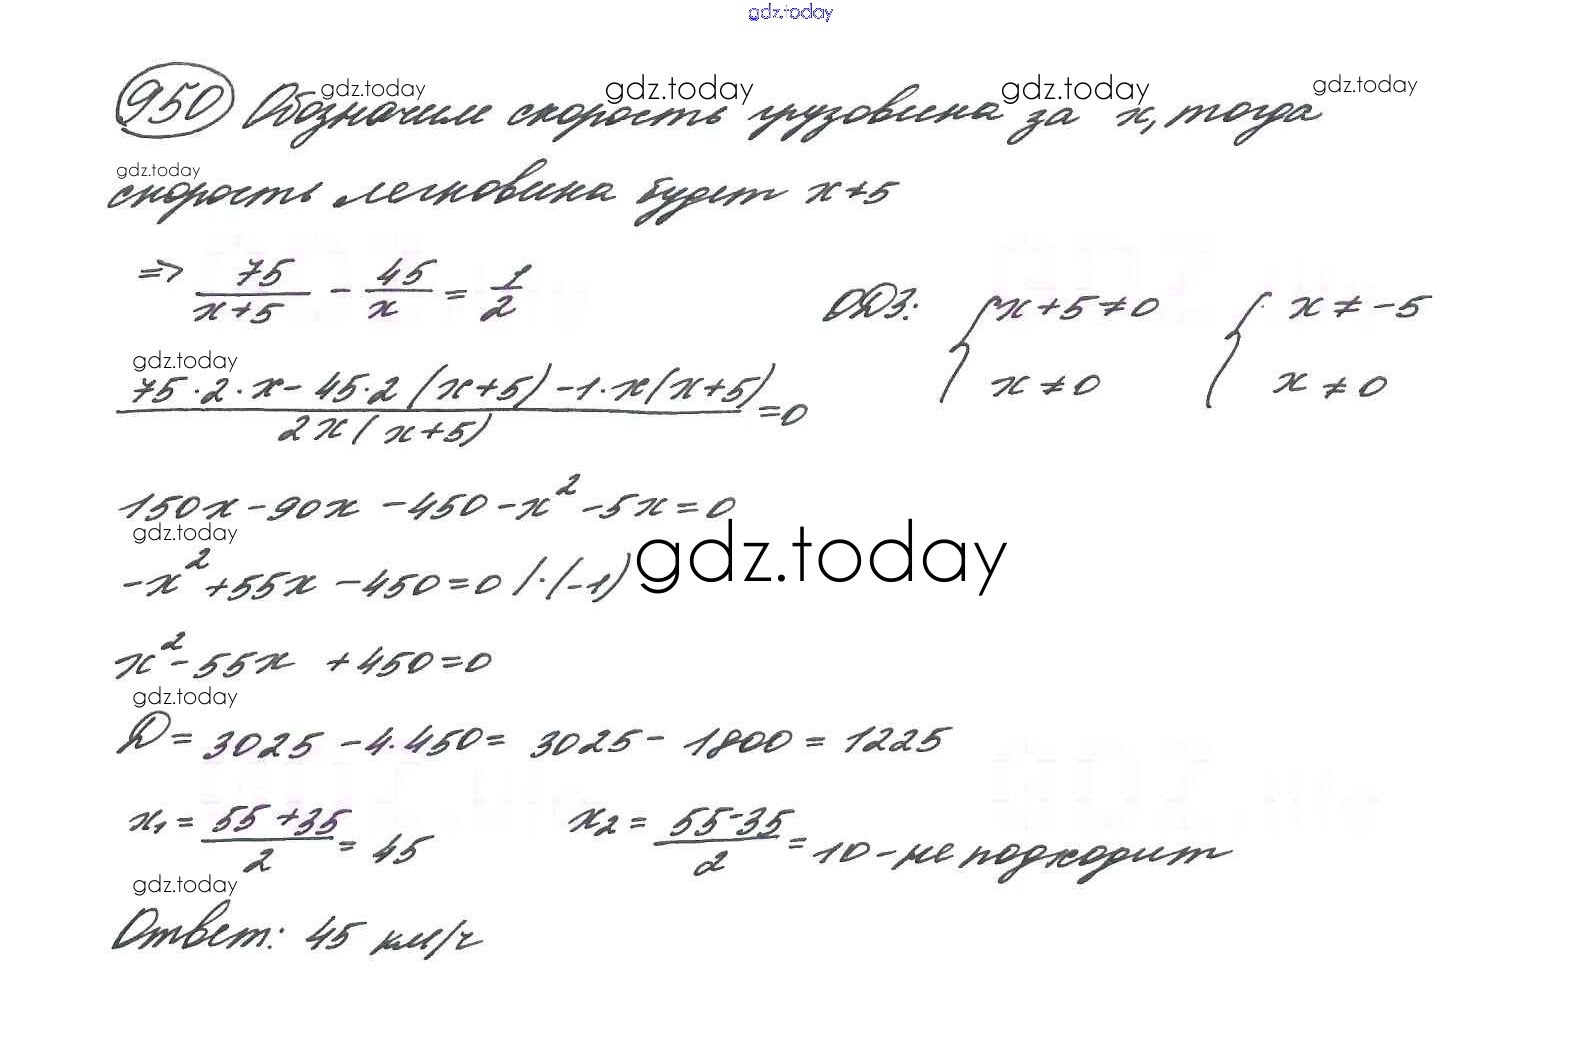 gdz.today
950 Обозначим скорость грузовика за x, тогда
gdz.today gdz.today gdz.today gdz.today
gdz.today
скорость легковика будет x+5
=> 75/(x+5) - 45/x = 1/2
ОДЗ: { x+5≠0 { x ≠ -5
x ≠ 0 x ≠ 0
gdz.today
(75·2·x - 45·2(x+5) - 1·x(x+5))/(2x(x+5)) = 0
150x - 90x - 450 - x² - 5x = 0
gdz.today
gdz.today
-x² + 55x - 450 = 0 /·(-1)
x² - 55x + 450 = 0
gdz.today
D = 3025 - 4·450 = 3025 - 1800 = 1225
x₁ = (55+35)/2 = 45 x₂ = (55-35)/2 = 10 - не подходит
gdz.today
Ответ: 45 км/ч